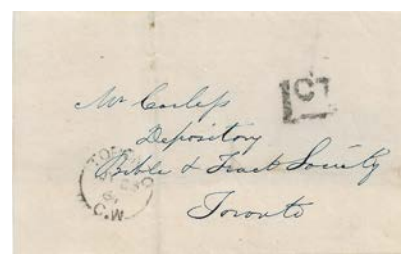 Mr Carless
C1
Depository
Bible & Tract Society
TORONTO
C.W
Toronto